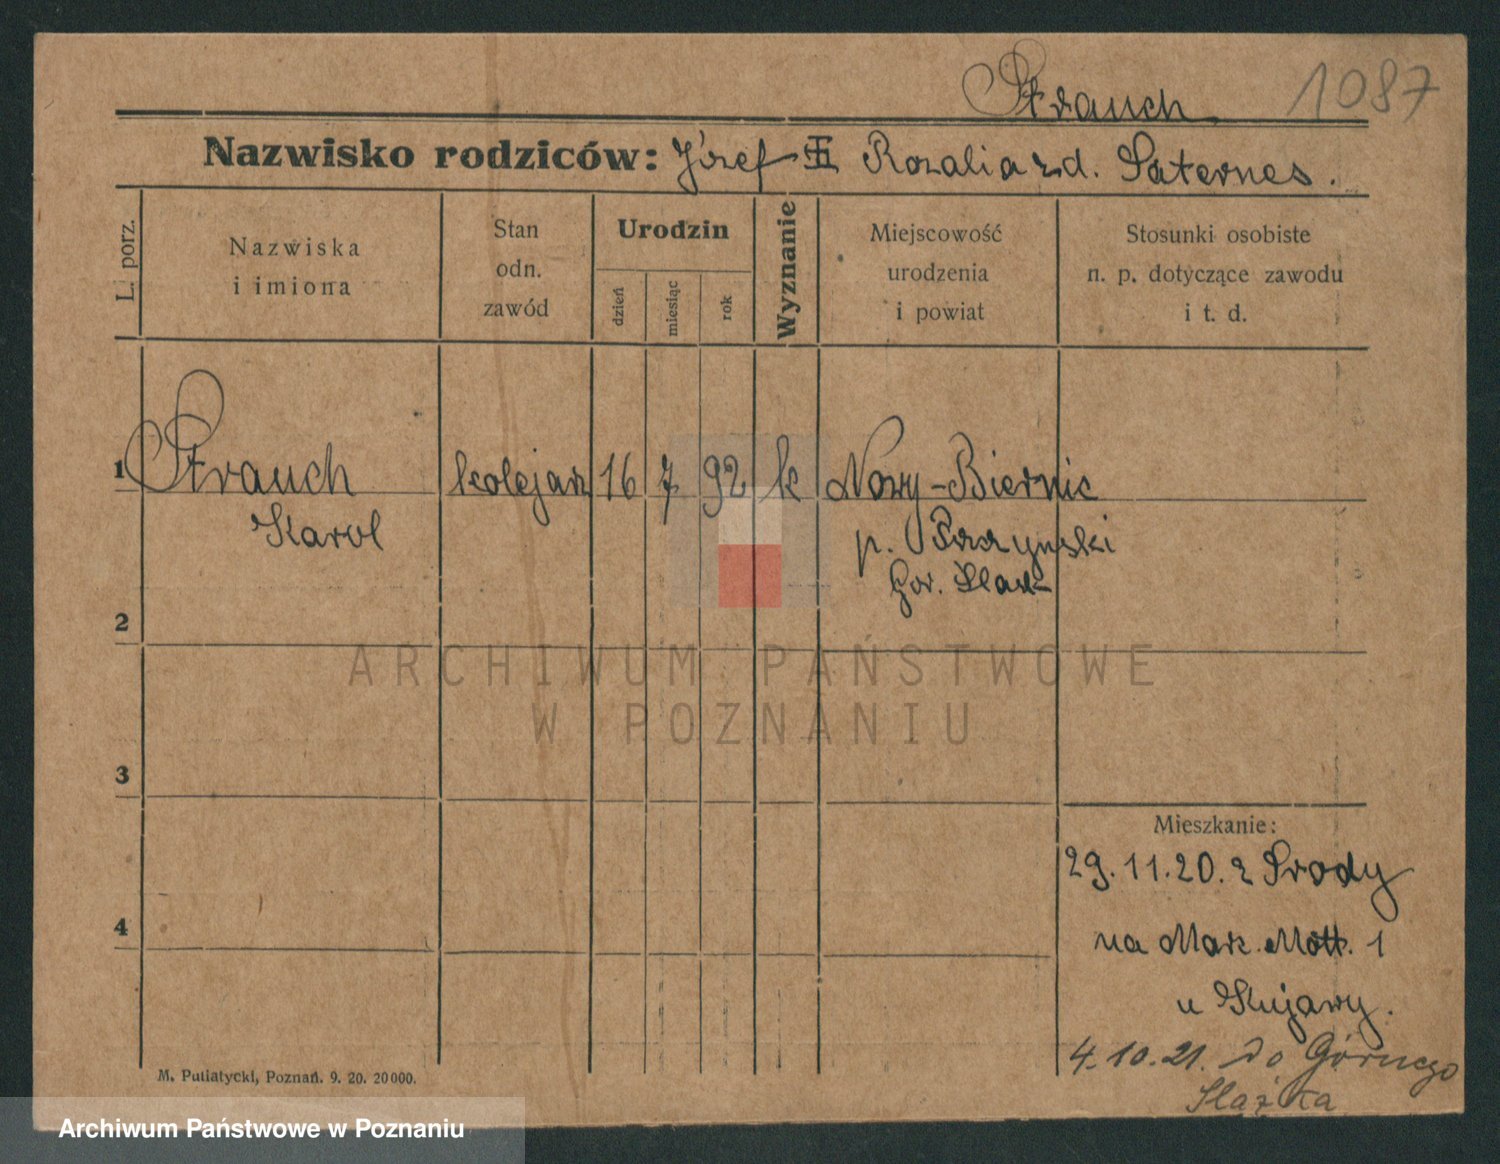 Strauch 1087
Nazwisko rodziców: Józef Rozalia zd. Saternes.
L. porz.
Nazwiska
i imiona
Stan
odn.
zawód
Urodzin
dzień
miesiąc
rok
Wyznanie
Miejscowość
urodzenia
i powiat
Stosunki osobiste
n. p. dotyczące zawodu
i t. d.
1 Strauch kolejarz 16 7 92 k Nowy-Biernic
Karol p.
Gór. Slask
2
3
4
ARCHIWUM PAŃSTWOWE
W POZNANIU
Mieszkanie:
29.11.20. z Srody
na Mar. Mott. 1
u Kujawy.
4.10.21. do Górnego
Slązka
M. Putiatycki, Poznań. 9. 20. 20000.
Archiwum Państwowe w Poznaniu